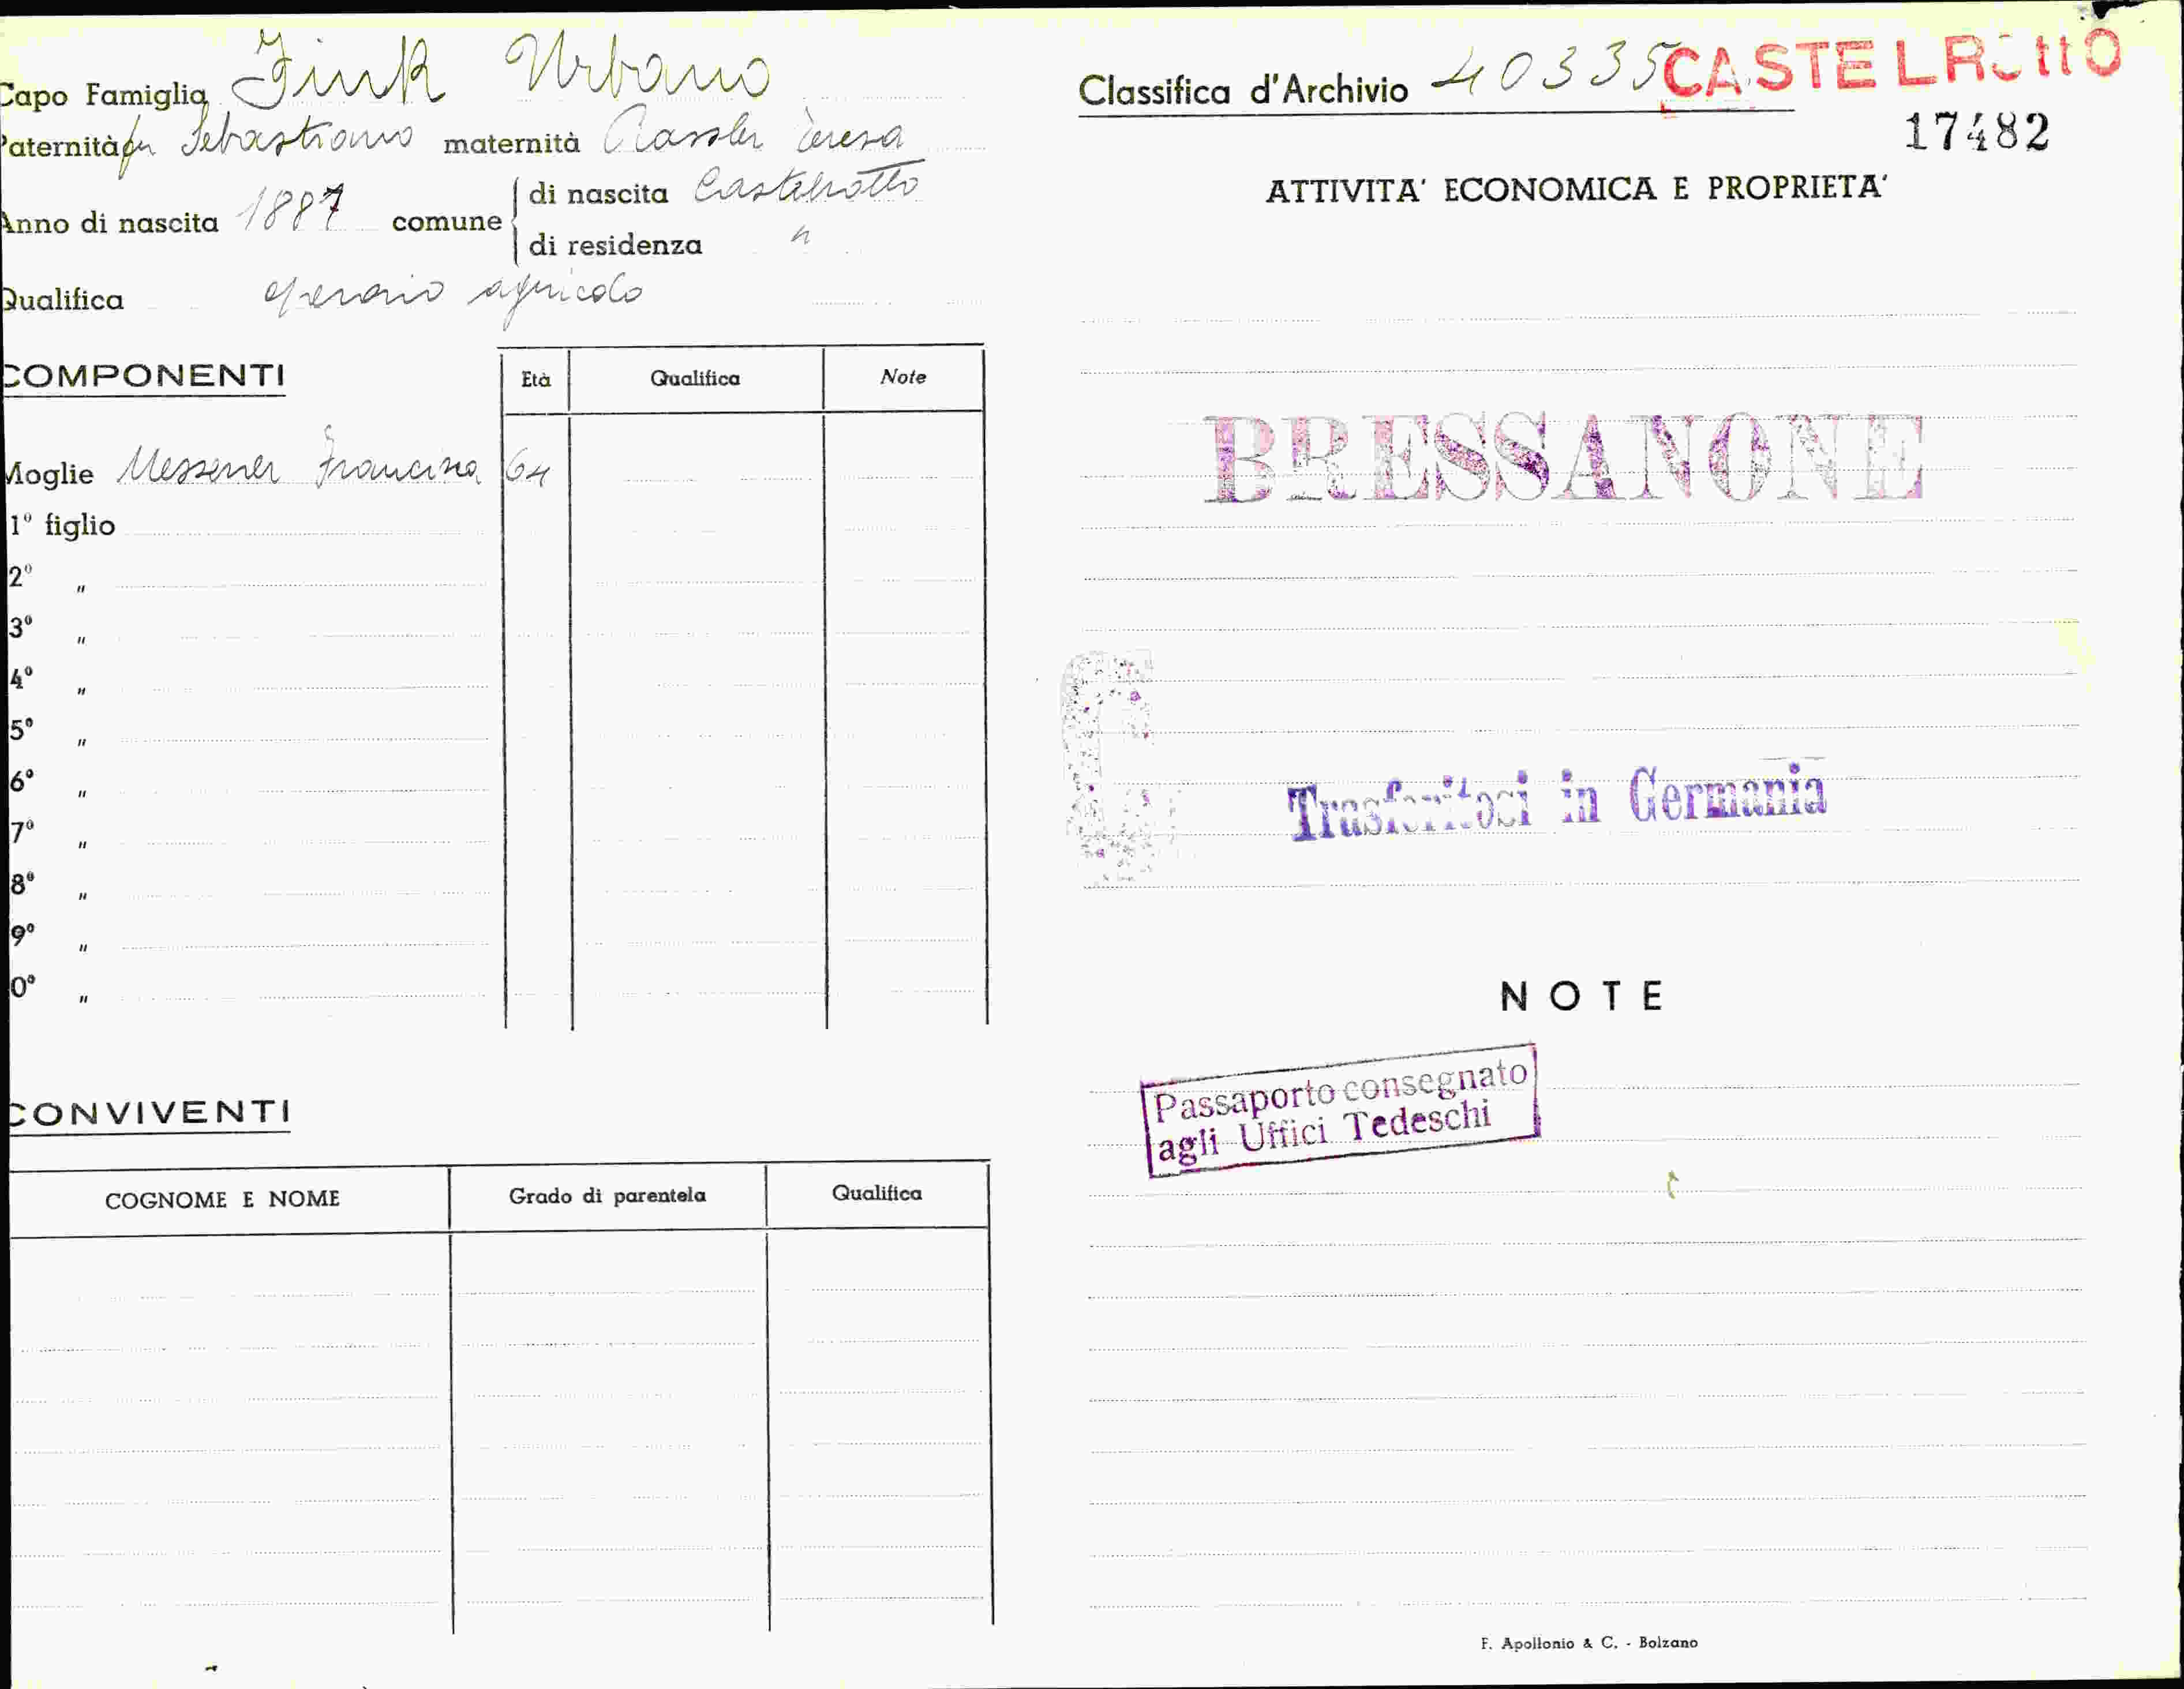 Capo Famiglia Fink Urbano
Paternità fu Sebastiano maternità Rassler Teresa
Anno di nascita 1887 comune di nascita Castelrotto
di residenza "
Qualifica operaio agricolo
COMPONENTI
Età Qualifica Note
Moglie Messner Francisca 64
1° figlio
2° "
3° "
4° "
5° "
6° "
7° "
8° "
9° "
0° "
CONVIVENTI
COGNOME E NOME Grado di parentela Qualifica
Classifica d'Archivio 40335 CASTELROttO
17482
ATTIVITA' ECONOMICA E PROPRIETA'
BRESSANONE
Trasferitosi in Germania
NOTE
Passaporto consegnato
agli Uffici Tedeschi
F. Apollonio & C. - Bolzano